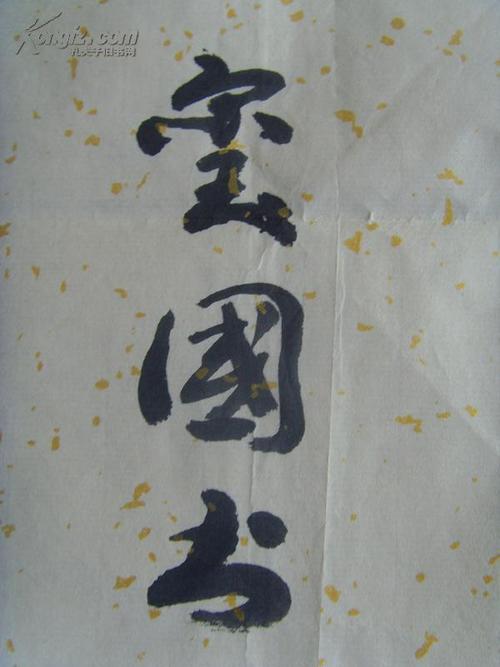 Kongfz.com
孔夫子旧书网
宝國书